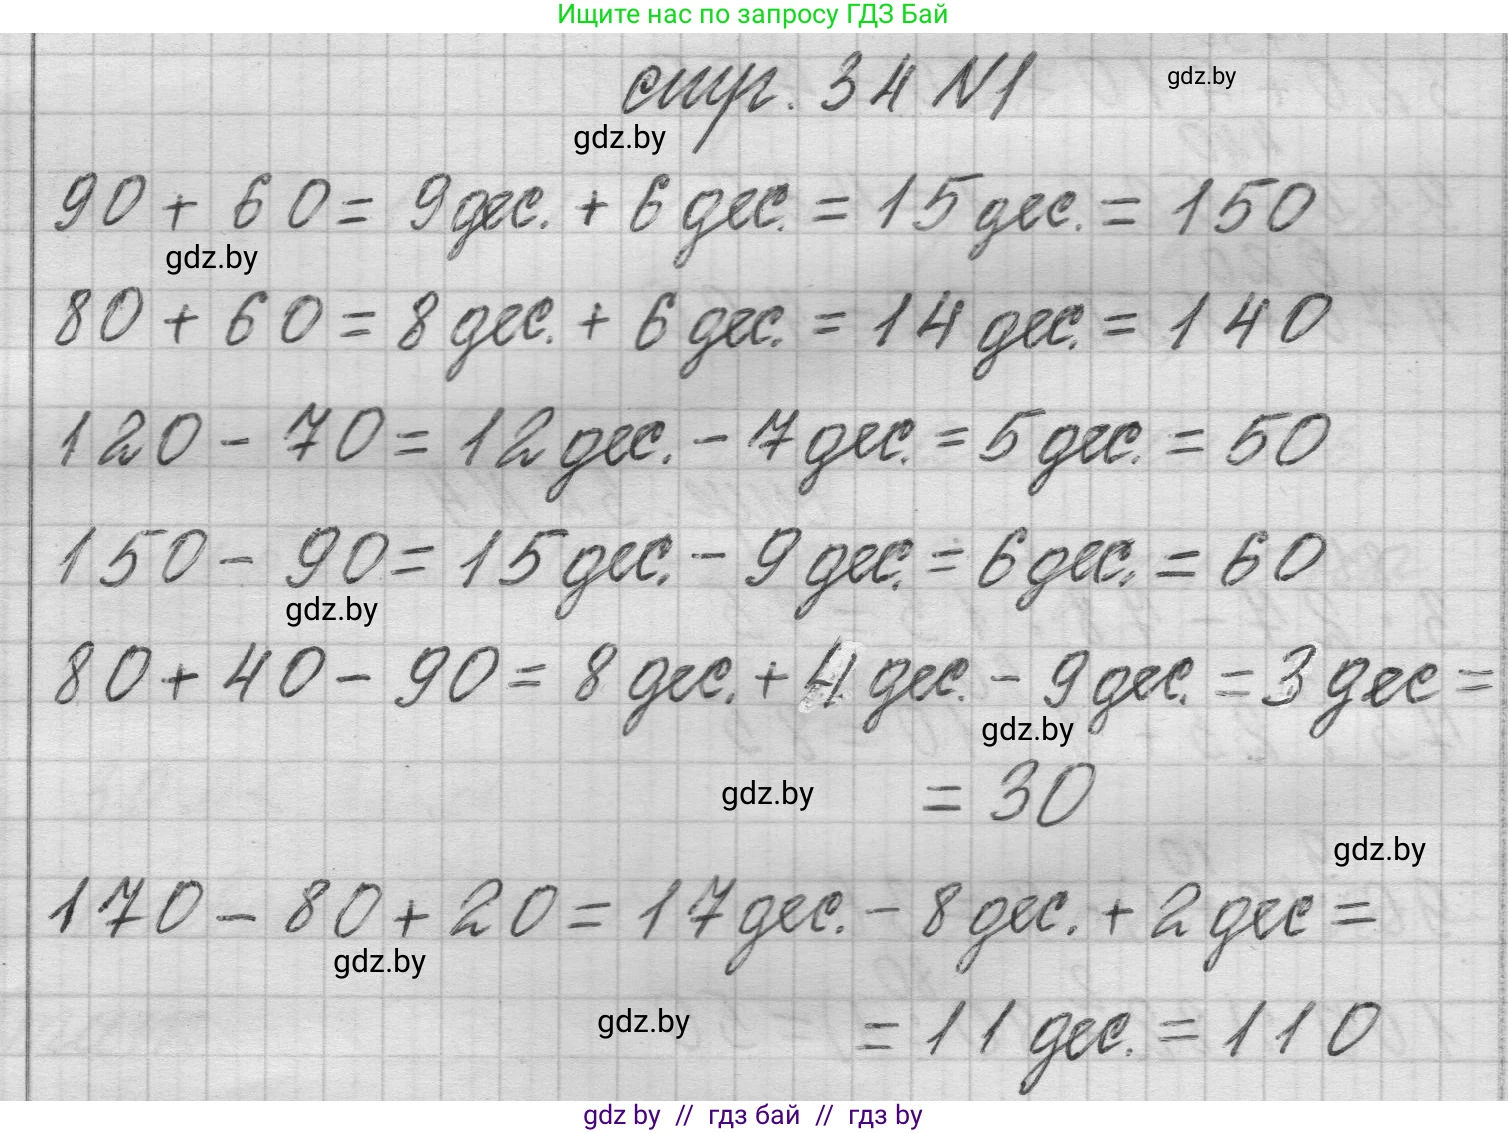 Ищите нас по запросу ГДЗ Бай
стр. 34 N1
gdz.by
gdz.by
90 + 60 = 9 дес. + 6 дес. = 15 дес. = 150
gdz.by
80 + 60 = 8 дес. + 6 дес. = 14 дес. = 140
120 - 70 = 12 дес. - 7 дес. = 5 дес. = 50
150 - 90 = 15 дес. - 9 дес. = 6 дес. = 60
gdz.by
80 + 40 - 90 = 8 дес. + 4 дес. - 9 дес. = 3 дес =
gdz.by
= 30
gdz.by
gdz.by
170 - 80 + 20 = 17 дес. - 8 дес. + 2 дес =
gdz.by
= 11 дес. = 110
gdz.by
gdz by // гдз бай // гдз by